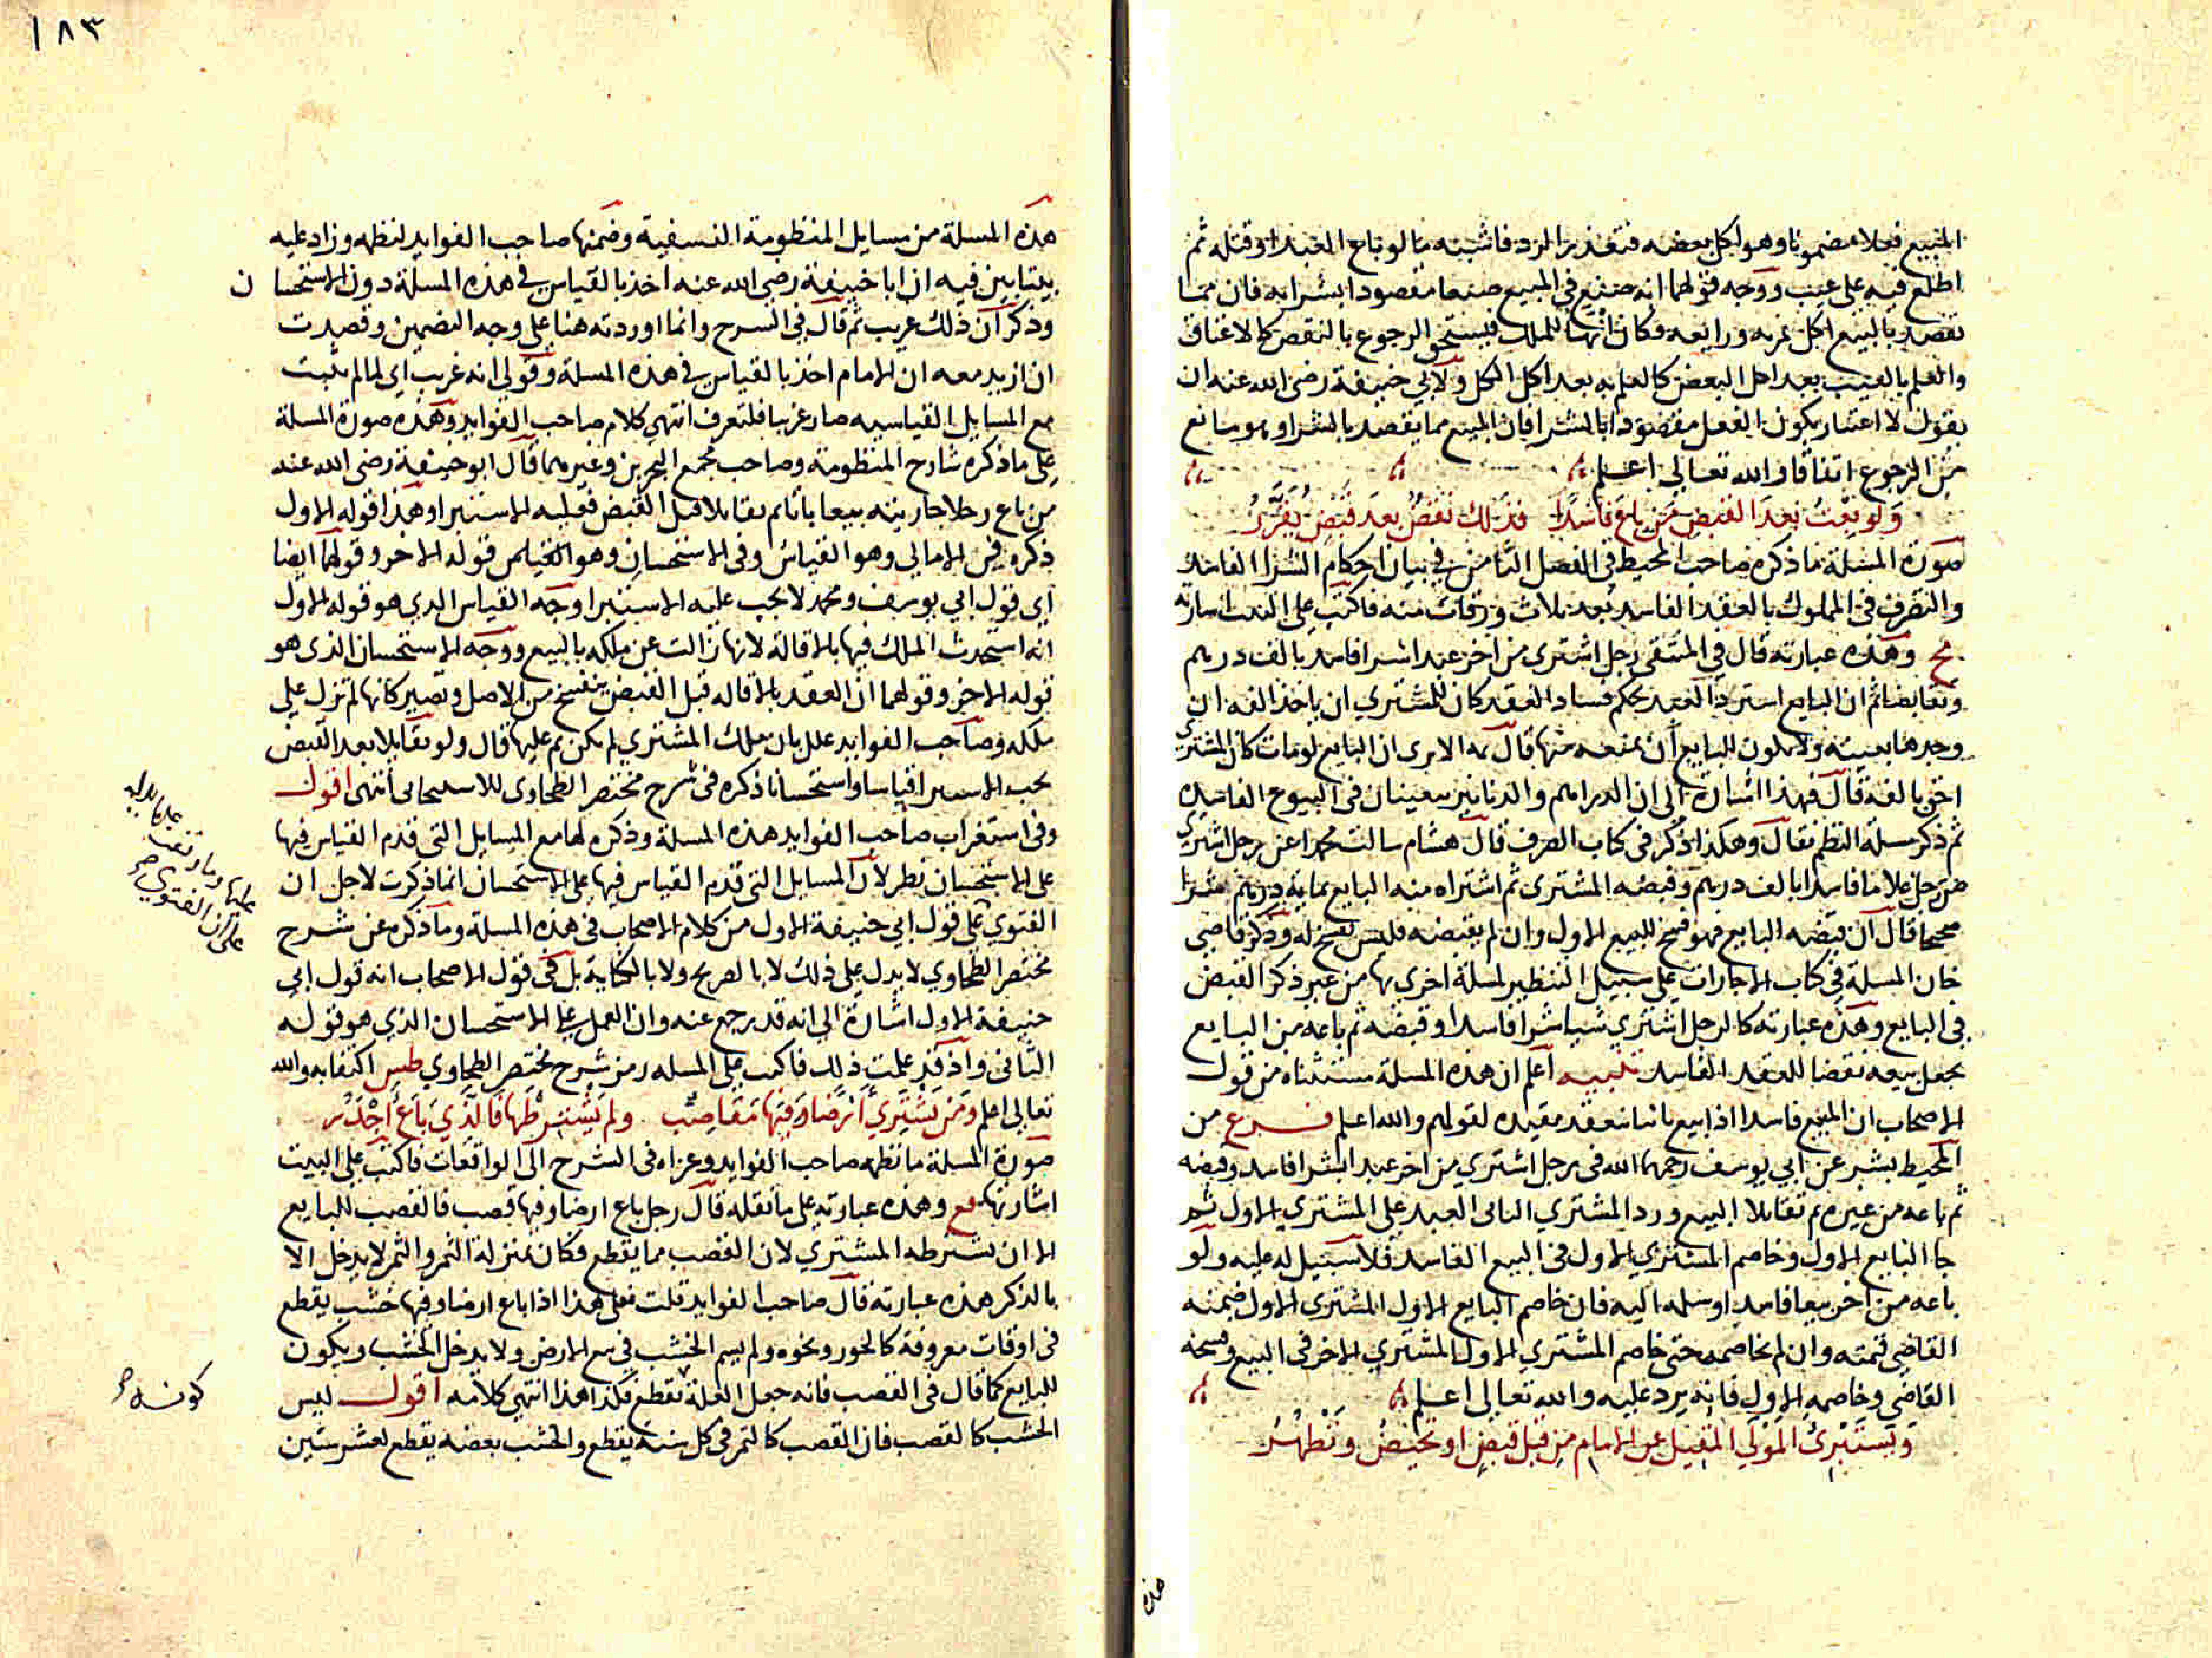 المبيع فعلا مضمونا وهو اكل بعضه فتعذر الرد فاشبه ما لو باع العبد او قتله ثم
اطلع فيه على عيب ووجه قولهما انه صنع في المبيع صنعا مقصودا بشرايه فان مما
تقصد بالبيع اكل ثمره وريعه فكان انهاء للملك فيستحق الرجوع بالنقص كالاعتاق
والعلم بالعيب بعد اكل البعض كالعلم به بعد اكل الكل ولابي حنيفة رضى الله عنه ان
يقول لا اعتبار بكون الفعل مقصودا بالشرا فان المبيع مما يقصد بالشرا وهو مانع
من الرجوع اتفاقا والله تعالى اعلم
ولو بعت بعد القبض من باع فاسدا فذلك نقض بعد قبض يقرر
صورة المسئلة ما ذكره صاحب المحيط في الفصل الثامن في بيان احكام الشرا الفاسد
والتصرف في المملوك بالعقد الفاسد بعد ثلاث ورقات منه فاكتب على البيت اشارته
مح وهذه عبارته قال في المنتقى رجل اشترى من اخر عبدا شرا فاسدا بالف درهم
وتقابضا ثم ان البايع استرد العبد بحكم فساد العقد كان للمشتري ان ياخذ الفه ان
وجدها بعينه ولا يكون للبايع ان يمنعه منها قال الا يرى ان البايع لو مات كان المشتري
احق بالفه قال فهذا اشارة الى ان الدراهم والدنانير يتعينان في البيوع الفاسده
ثم ذكر مسئلة النظم فقال وهكذا ذكر في كتاب الصرف قال هشام سالت محمدا عن رجل اشترى
من رجل غلاما فاسدا بالف درهم وقبضه المشترى ثم اشتراه منه البايع بماية درهم شرا
صحيحا قال ان قبضه البايع فهو فسخ للبيع الاول وان لم يقبضه فليس بفسخ له وذكر قاضي
خان المسلة في كتاب الاجارات على سبيل التنظير لمسلة اخرى بها من غير ذكر القبض
في البايع وهذه عبارته كالرجل اشترى شيا شرا فاسدا وقبضه ثم باعه من البايع
يجعل بيعه نقضا للعقد الفاسد تنبيه اعلم ان هذه المسلة مستثناه من قول
الاصحاب ان المبيع فاسدا اذا بيع ثانيا نعقد مقيده لقولهم والله اعلم فرع من
المحيط بشر عن ابي يوسف رحمهما الله في رجل اشترى من اخر عبدا بشرا فاسد وقبضه
ثم باعه من غيره ثم تقابلا البيع ورد المشترى الثاني العبد على المشتري الاول ثم
جا البايع الاول وخاصم المشتري الاول في البيع الفاسد فلا سبيل له عليه ولو
باعه من اخر بيعا فاسدا وسلمه اليه فان خاصم البايع الاول المشترى الاول ضمنه
القاضي قيمته وان لم يخاصمه حتى خاصم المشتري الاول المشتري الاخر في البيع وفسخه
القاضي وخاصمه الاول فانه يرد عليه والله تعالى اعلم
ويستبرئ المولي المقيل عن الامام من قبل قبض او تحيض وتطهر
هذه
١٨٣
هذه المسلة من مسايل المنظومة النسفية وضمنها صاحب الفوايد لنظمه وزاد عليه
بيتا بين فيه ان ابا حنيفة رضى الله عنه اخذ بالقياس في هذه المسلة دون الاستحسان
وذكر ان ذلك غريب ثم قال في الشرح وانما اوردته هنا على وجه التضمين وقصدت
ان ازيد معه ان الامام اخذ بالقياس في هذه المسلة وقولي انه غريب اي لما لم يثبت
مع المسايل القياسيه صار غريبا فلتعرف انتهى كلام صاحب الفوايد وهذه صورة المسلة
على ما ذكره شارح المنظومة وصاحب مجمع البحرين وغيرهما قال ابو حنيفة رضى الله عنه
من باع رجلا جاريته بيعا باتا ثم تقايلا قبل القبض فعليه الاستبرا وهذا قوله الاول
ذكره في الامالي وهو القياس وفي الاستحسان وهو قوله الاخر وقولهما ايضا
اي قول ابي يوسف ومحمد لا يجب عليه الاستبرا وجه القياس الذي هو قوله الاول
انه استحدث الملك فيها بالاقالة لانها زالت عن ملكه بالبيع ووجه الاستحسان الذي هو
قوله الاخر وقولهما ان العقد بالاقاله قبل القبض ينفسخ من الاصل وتصير كانها لم تزل على
ملكه وصاحب الفوايد علل بان ملك المشتري لم يكن تم عليها قال ولو تقايلا بعد القبض
يجب الاستبرا قياسا واستحسانا ذكره في شرح مختصر الطحاوى للاسبيجابى انتهى اقول
وفي استغراب صاحب الفوايد هذه المسلة وذكره لها مع المسايل التي قدم القياس فيها
على الاستحسان نظر لان المسايل التي قدم القياس فيها على الاستحسان انما ذكرت لاجل ان
الفتوي على قول ابي حنيفة الاول من كلام الاصحاب في هذه المسلة وما ذكره عن شرح
مختصر الطحاوي لا يدل على ذلك لا بالصريح ولا بالكناية بل في قول الاصحاب انه قول ابي
حنيفة الاول اشارة الى انه قد رجع عنه وان العمل على الاستحسان الذي هو قوله
الثاني واذ قد علمت ذلك فاكتب على المسله رمز شرح مختصر الطحاوي طس اكتفا به والله
تعالى اعلم ومن يشتري ارضا وفيها مقاصب ولم يشترطها فالذي باع اجدر
صورة المسلة ما نظمه صاحب الفوايد وعزاه في الشرح الى الواقعات فاكتب على البيت
اشارتها قع وهذه عبارته على ما نقله قال رجل باع ارضا وفيها قصب فالقصب للبايع
الا ان يشترطه المشتري لان القصب مما يقطع فكان بمنزلة الثمر والثمر لا يدخل الا
بالذكر هذه عبارته قال صاحب الفوايد قلت فعلى هذا اذا باع ارضا وفيها خشب يقطع
في اوقات معروفة كالحور ونحوه ولم يسم الخشب في بيع الارض ولا يدخل الخشب ويكون
للبايع كما قال في القصب فانه جعل العلة يقطع فكذا هذا انتهى كلامه اقول ليس
الخشب كالقصب فان القصب كالثمر في كل سنه يقطع والخشب بعضه يقطع لعشر سنين
على ان الفتوي
كونه